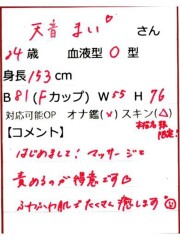 天音 まい さん
24歳 血液型 O型
身長153cm
B 81(Fカップ) W 55 H 76
対応可能OP オナ鑑(×) スキン(△)
【コメント】
はじめまして! マッサージと
責めるのが得意です
ふわふわ肌でたくさん癒します